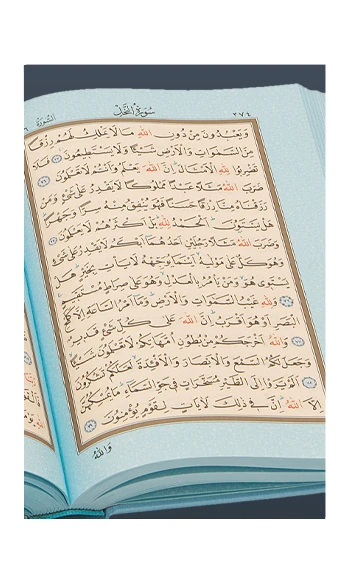 ٢٧٤ سُورَةُ النَّحْلِ السُّورَةُ
وَيَعْبُدُونَ مِنْ دُونِ اللّٰهِ مَا لَا يَمْلِكُ لَهُمْ رِزْقًا
مِنَ السَّمٰوَاتِ وَالْاَرْضِ شَيْـًٔا وَلَا يَسْتَطِيعُونَ ﴿٧٣﴾ فَلَا
تَضْرِبُوا لِلّٰهِ الْاَمْثَالَ اِنَّ اللّٰهَ يَعْلَمُ وَاَنْتُمْ لَا تَعْلَمُونَ ﴿٧٤﴾
ضَرَبَ اللّٰهُ مَثَلًا عَبْدًا مَمْلُوكًا لَا يَقْدِرُ عَلٰى شَيْءٍ وَمَنْ
رَزَقْنَاهُ مِنَّا رِزْقًا حَسَنًا فَهُوَ يُنْفِقُ مِنْهُ سِرًّا وَجَهْرًا
هَلْ يَسْتَوُونَ اَلْحَمْدُ لِلّٰهِ بَلْ اَكْثَرُهُمْ لَا يَعْلَمُونَ ﴿٧٥﴾
وَضَرَبَ اللّٰهُ مَثَلًا رَجُلَيْنِ اَحَدُهُمَا اَبْكَمُ لَا يَقْدِرُ عَلٰى شَيْءٍ
وَهُوَ كَلٌّ عَلٰى مَوْلٰيهُ اَيْنَمَا يُوَجِّهْهُ لَا يَأْتِ بِخَيْرٍ هَلْ
يَسْتَوِي هُوَ وَمَنْ يَأْمُرُ بِالْعَدْلِ وَهُوَ عَلٰى صِرَاطٍ مُسْتَقِيمٍ
﴿٧٦﴾ وَلِلّٰهِ غَيْبُ السَّمٰوَاتِ وَالْاَرْضِ وَمَا اَمْرُ السَّاعَةِ اِلَّا كَلَمْحِ
الْبَصَرِ اَوْ هُوَ اَقْرَبُ اِنَّ اللّٰهَ عَلٰى كُلِّ شَيْءٍ قَدِيرٌ
﴿٧٧﴾ وَاللّٰهُ اَخْرَجَكُمْ مِنْ بُطُونِ اُمَّهَاتِكُمْ لَا تَعْلَمُونَ شَيْـًٔا
وَجَعَلَ لَكُمُ السَّمْعَ وَالْاَبْصَارَ وَالْاَفْـِٔدَةَ لَعَلَّكُمْ تَشْكُرُونَ
﴿٧٨﴾ اَلَمْ يَرَوْا اِلَى الطَّيْرِ مُسَخَّرَاتٍ فِي جَوِّ السَّمَاءِ مَا يُمْسِكُهُنَّ
اِلَّا اللّٰهُ اِنَّ فِي ذٰلِكَ لَاٰيَاتٍ لِقَوْمٍ يُؤْمِنُونَ ﴿٧٩﴾
وَاللّٰهُ